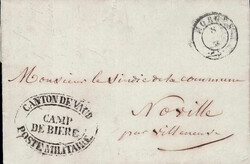 MORGES
Monsieur le Sindic de la commune
Noville
par Villeneuve
CANTON DE VAUD
CAMP
DE BIERE
POSTE MILITAIRE